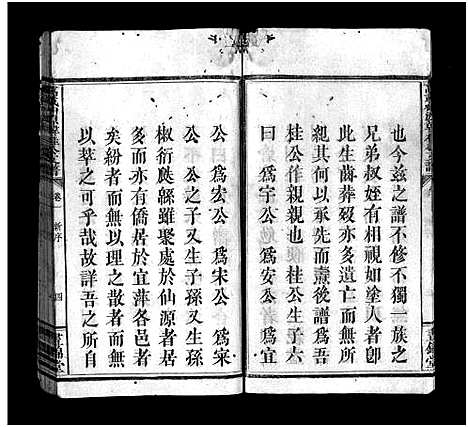 也今茲之譜不修不獨一族之
兄弟叔姪有相視如塗人者卽
此生齒葬歿亦多遺亡而無所
紀其何以承先而燾後譜爲吾
桂公作親親也 桂公生子六
曰 爲宇公 爲安公 爲宜
公曰 爲宏公 爲宋公 爲寀
公 公之子又生子孫又生孫
椒衍瓞緜雖聚處於仙源者居
多而亦有僑居於宜萍各邑者
矣紛者而無以理之散者而無
以萃之可乎哉故詳吾之所自
卷一 新序 四